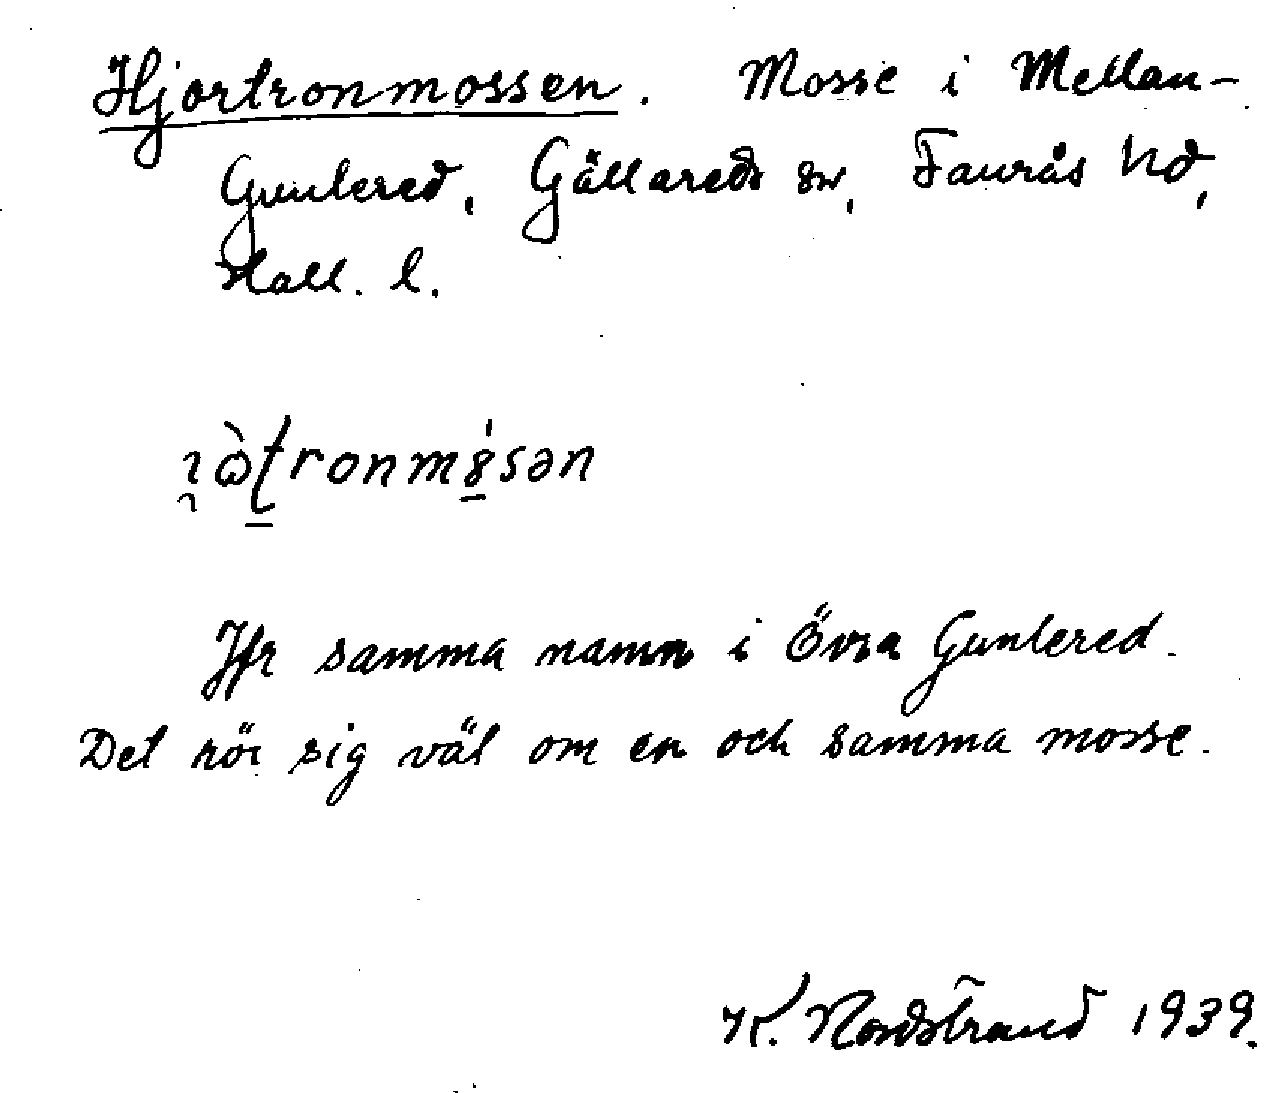 Hjortronmossen. Mosse i Mellan-
Gunlered, Gällareds sn, Faurås hd,
Hall. l.
Jfr samma namn i Övra Gunlered.
Det rör sig väl om en och samma mosse.
K. Nordstrand 1939.